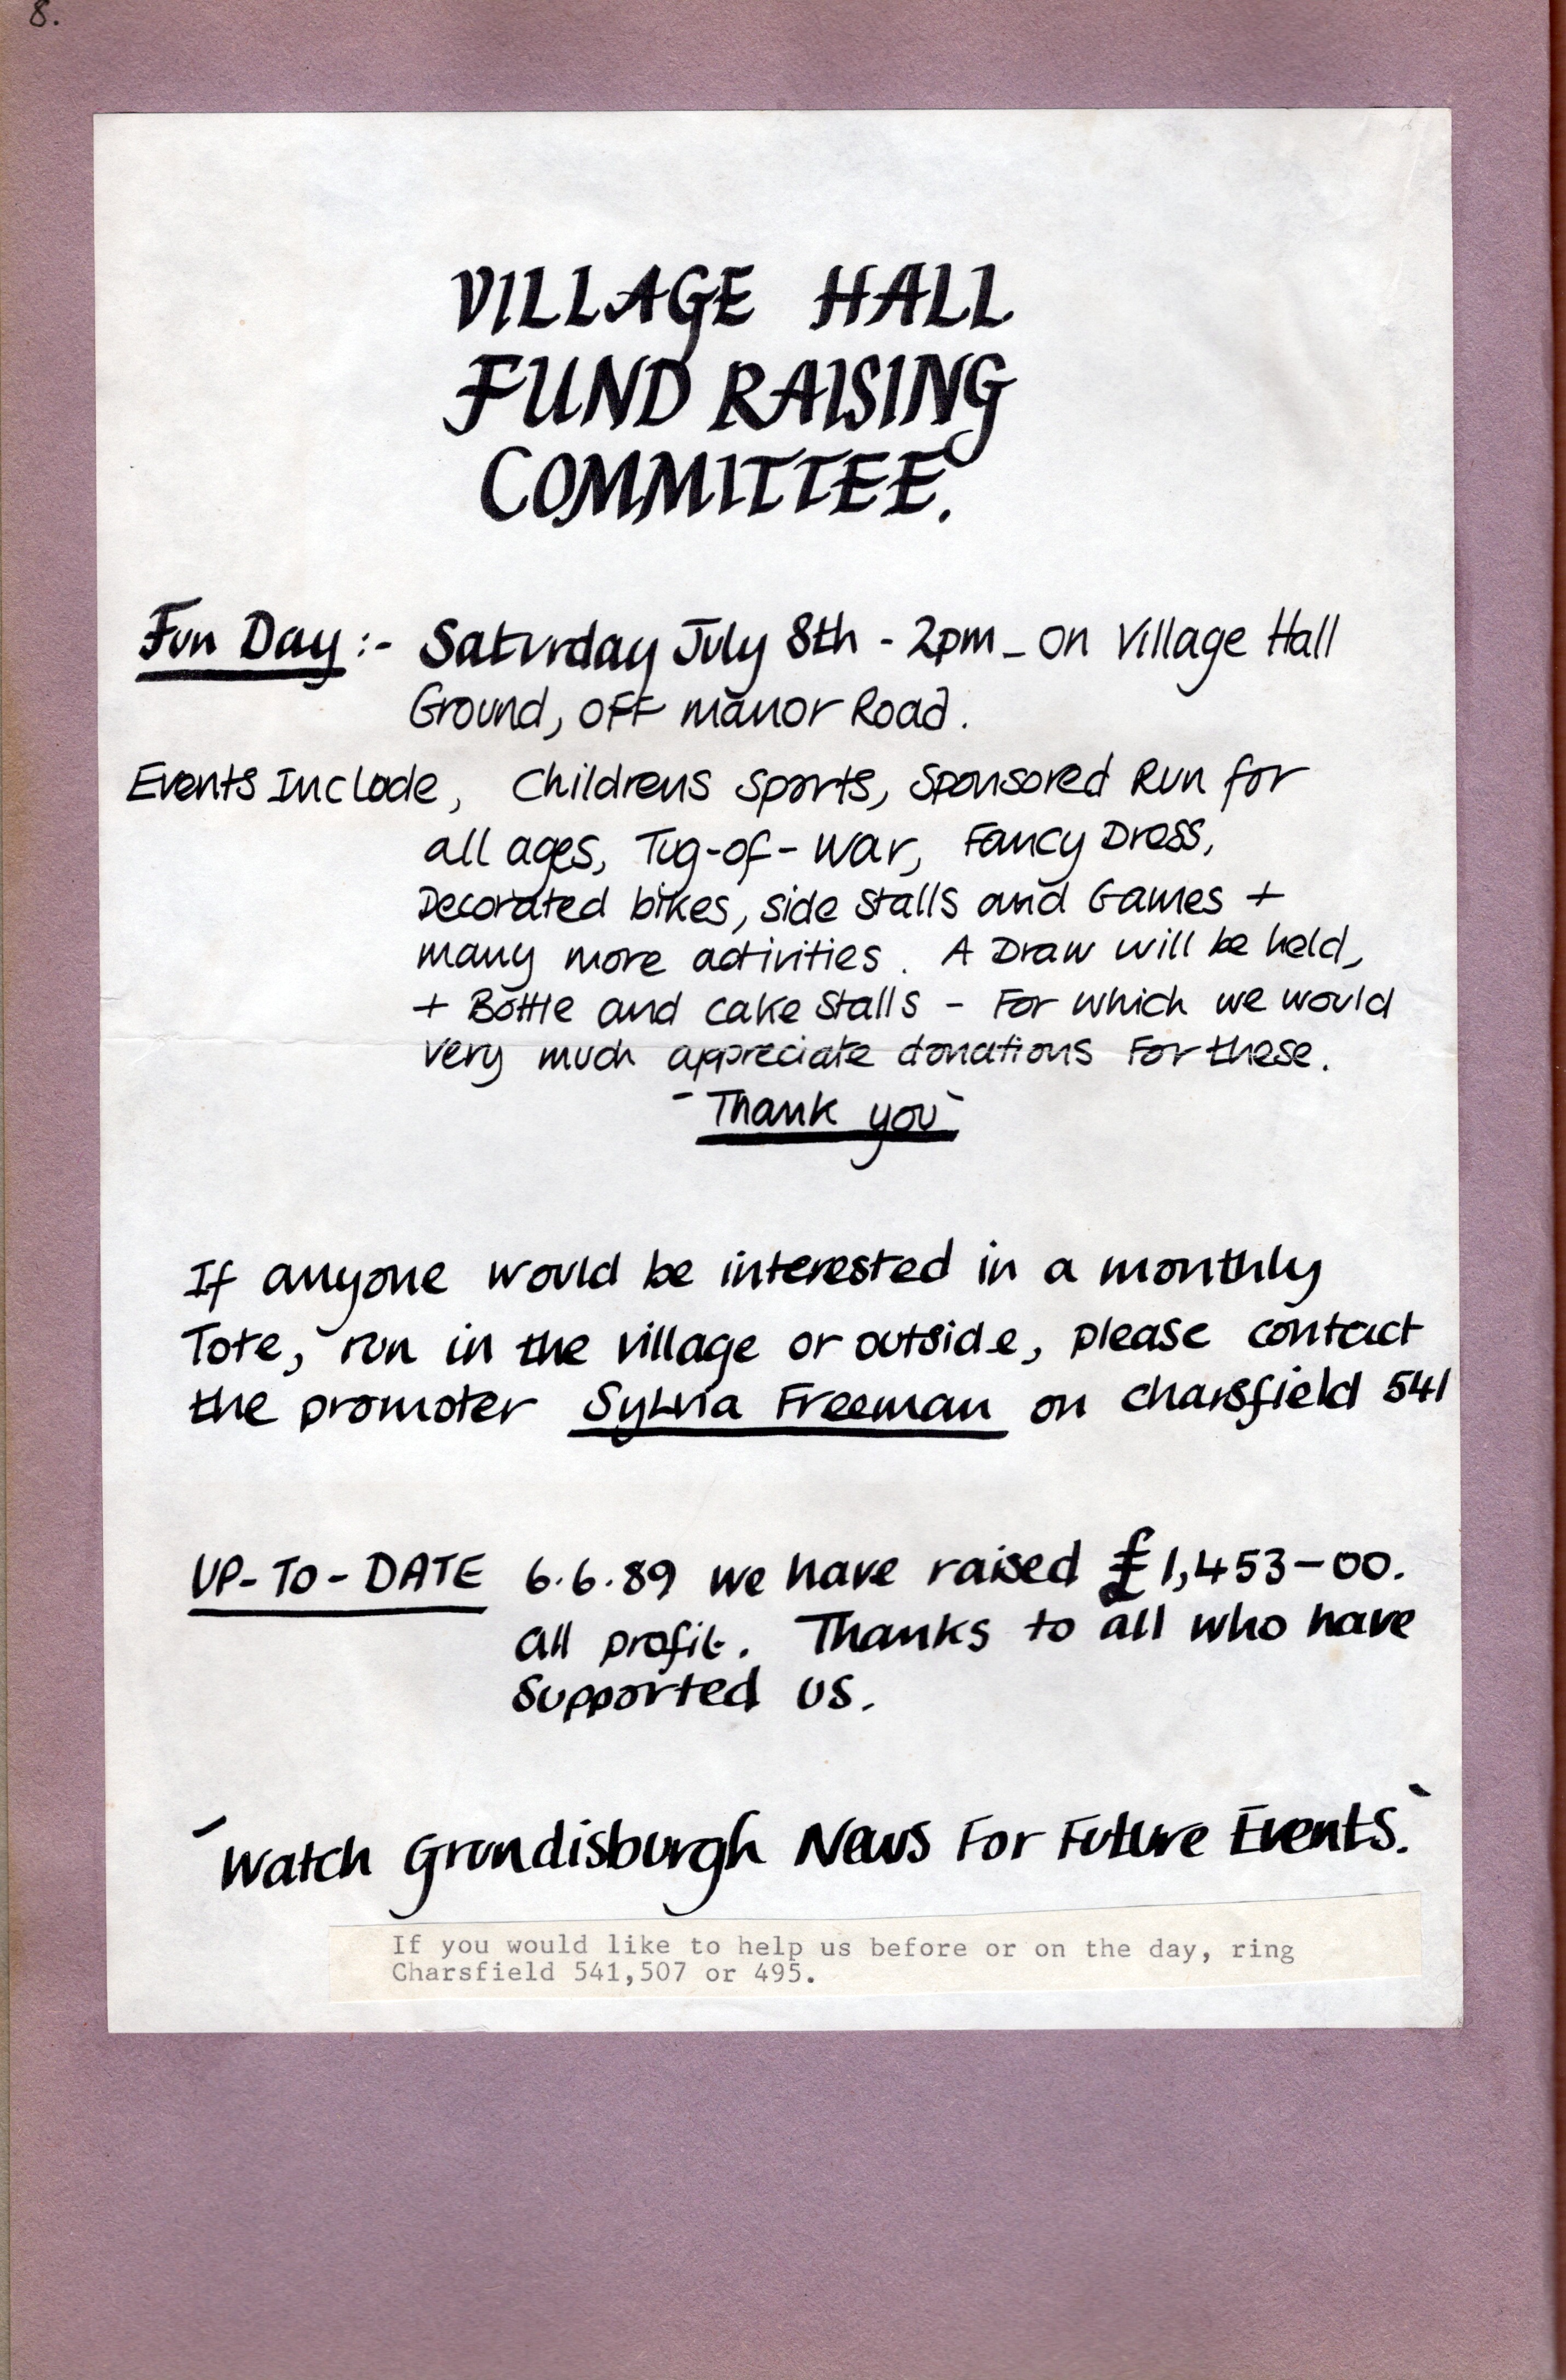 8.
VILLAGE HALL
FUND RAISING
COMMITTEE.
Fun Day :- Saturday July 8th - 2pm - on Village Hall
Ground, off manor Road.
Events Include, Childrens Sports, Sponsored Run for
all ages, Tug-of-War, Fancy Dress,
Decorated bikes, side stalls and Games +
many more activities. A Draw will be held,
+ Bottle and cake stalls - For which we would
very much appreciate donations for these.
- Thank you -
If anyone would be interested in a monthly
Tote, run in the village or outside, please contact
the promoter Sylvia Freeman on Charsfield 541
UP-TO-DATE 6.6.89 we have raised £1,453-00.
all profit. Thanks to all who have
supported us.
'Watch Grundisburgh News For Future Events.'
If you would like to help us before or on the day, ring
Charsfield 541,507 or 495.